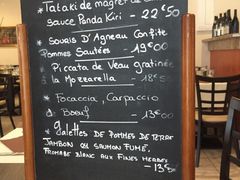 *Tataki de magret de
sauce Panda Kiri - 22€50
* Souris D'Agneau Confite
Pommes Sautées - 19€00
* Piccata de Veau gratinée
à la Mozzarella - 18€50
* Focaccia, Carpaccio
de Boeuf - 13€00
* galettes DE POMMES DE TERRE
JAMBON OU SAUMON FUMÉ,
FROMAGE BLANC AUX FINES HERBES
- 13€50